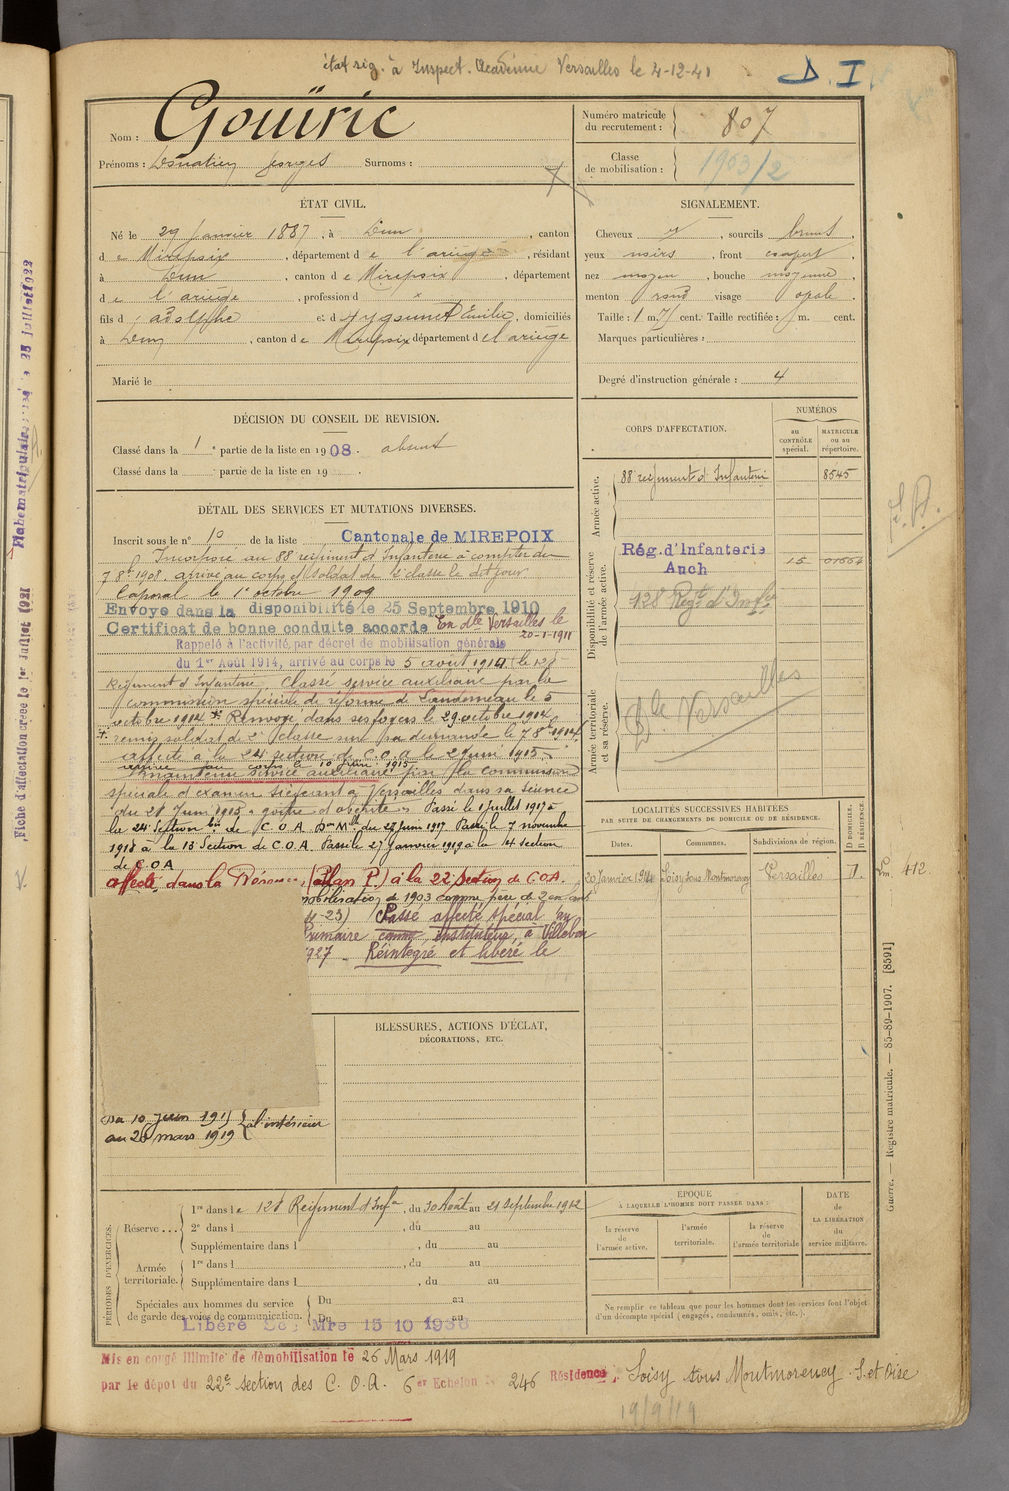 état sig. à Inspect. Académie Versailles le 4-12-41
D. I
Nom : Gouïric
Prénoms : Donatien Georges Surnoms :
Numéro matricule du recrutement : 807
Classe de mobilisation : 1903/2
ÉTAT CIVIL.
Né le 29 Janvier 1887, à Dun, canton
de Mirepoix, département de l'ariège, résidant
à Dun, canton de Mirepoix, département
de l'ariège, profession d x
fils d' adolphe et d Eydoumet Emilie, domiciliés
à Dun, canton de Mirepoix département de l'ariège
Marié le
SIGNALEMENT.
Cheveux , sourcils bruns
yeux noirs, front
nez moyen, bouche moyenne,
menton rond visage ovale.
Taille : 1 m. 71 cent. Taille rectifiée : m. cent.
Marques particulières :
Degré d'instruction générale : 4
DÉCISION DU CONSEIL DE REVISION.
Classé dans la 1e partie de la liste en 1908. absent
Classé dans la partie de la liste en 19 .
DÉTAIL DES SERVICES ET MUTATIONS DIVERSES.
Inscrit sous le n° 10 de la liste Cantonale de MIREPOIX
Incorporé au 88 régiment d'Infanterie à compter du
7 8bre 1908. arrivé au corps et soldat de 2e classe le dit jour
Caporal le 1er octobre 1909
Envoyé dans la disponibilité le 25 Septembre 1910
Certificat de bonne conduite accordé En dle Versailles le
20-1-1911
Rappelé à l'activité, par décret de mobilisation générale
du 1er Août 1914, arrivé au corps le 5 août 1914 (le 128
Régiment d'Infanterie. Classé service auxiliaire par la
commission spéciale de réforme de Landerneau le 5
octobre 1914 + Renvoyé dans ses foyers le 29 octobre 1914
+ remis soldat de 2e classe sur sa demande le 7 8bre 1914
affecté à la 24 section de C.O.A. le 2 Juin 1915
arrivé au corps le 10 juin 1915
Maintenu service auxiliaire par la commission
spéciale d'examen siégeant à Versailles dans sa séance
du 28 Juin 1915 « goitre et obésité ». Passé le 1 Juillet 1917 à
la 24 Section bis de C.O.A. Don Mlle du 23 Juin 1917 Passé le 7 novembre
1918 à la 13 Section de C.O.A. Passé le 27 Janvier 1919 à la 14 section
de C.O.A
affecté dans la Réserve (Plan P.) à la 22 Section de C.O.A.
mobilisation de 1903 comme père de 2 enfants
11-23) Classé affecté spécial au
Primaire comme instituteur, à Villebon
1927 - Réintégré et libéré le
Du 10 Juin 1915
au 26 mars 1919 } à l'intérieur
BLESSURES, ACTIONS D'ÉCLAT,
DÉCORATIONS, ETC.
CORPS D'AFFECTATION.
NUMÉROS
au CONTRÔLE spécial.
MATRICULE ou au répertoire.
Armée active.
88 régiment d'Infanterie 8545
Disponibilité et réserve de l'armée active.
Rég. d'Infanterie
Auch 15 01664
128 Regt d'Infie
Armée territoriale et sa réserve.
Dle Versailles
LOCALITÉS SUCCESSIVES HABITÉES
PAR SUITE DE CHANGEMENTS DE DOMICILE OU DE RÉSIDENCE.
Dates. Communes. Subdivisions de région. D DOMICILE. R RÉSIDENCE.
20 Janvier 1911 Soisy sous Montmorency Versailles D.
412
PÉRIODES D'EXERCICES.
Réserve...
1re dans le 128 Régiment d'Infie, du 30 Août au 21 Septembre 1912
2e dans l , du au
Supplémentaire dans l , du au
Armée territoriale.
1re dans l , du au
Supplémentaire dans l , du au
Spéciales aux hommes du service de garde des voies de communication.
Du au
Du au
Libéré 15 10 1936
ÉPOQUE
À LAQUELLE L'HOMME DOIT PASSER DANS :
la réserve de l'armée active.
l'armée territoriale.
la réserve de l'armée territoriale
DATE de LA LIBÉRATION du service militaire.
Ne remplir ce tableau que pour les hommes dont les services font l'objet
d'un décompte spécial (engagés, condamnés, omis, etc.).
Mis en congé illimité de démobilisation le 26 Mars 1919
par le dépot du 22e section des C.O.A. 6er Echelon N° 246 Résidence, Soisy sous Montmorency S. et Oise
19/9/19
Guerre. — Registre matricule. — 85-89-1907. [8591]
Fiche d'affectation créée le 1er Juillet 1921